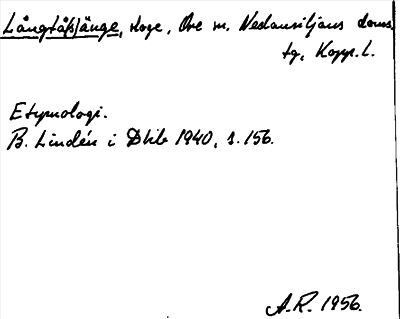 Långtå(s)änge, skoge, Ore sn. Nedansiljans doms.
tg, Kopp. l.
Etymologi.
B. Lindén i Dhb 1940, s. 156.
A.R. 1956.